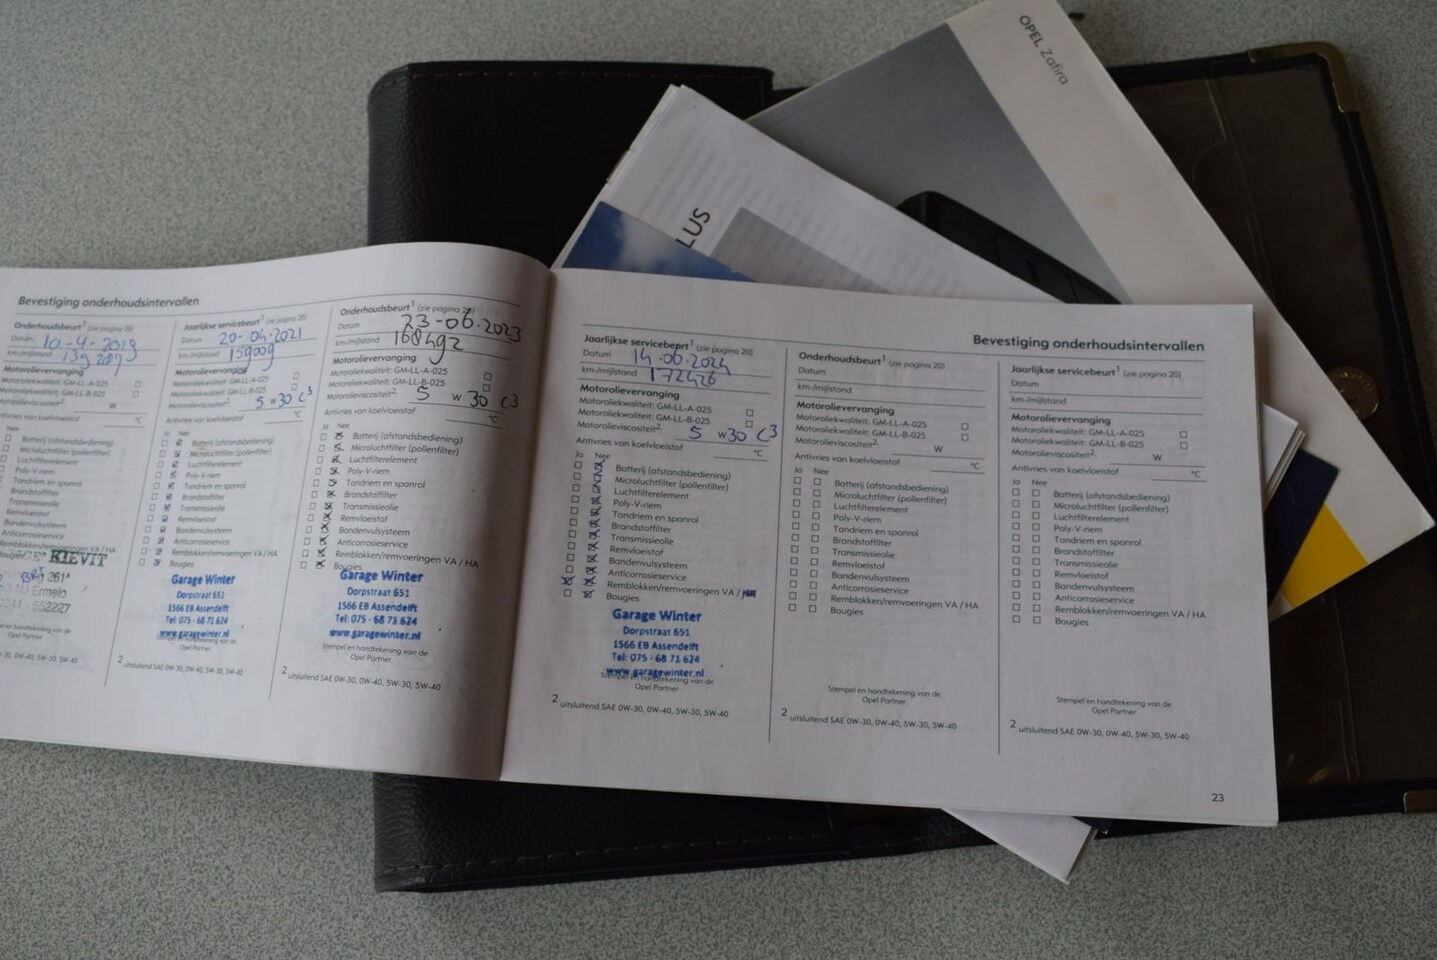 OPEL Zafira
LUS
Bevestiging onderhoudsintervallen
Onderhoudsbeurt¹ (zie pagina 20)
Datum: 10-4-2019
km-/mijlstand
Motorolievervanging
Motoroliekwaliteit: GM-LL-A-025
Motoroliekwaliteit: GM-LL-B-025
W
°C
Nee
Batterij (afstandsbediening)
Microluchtfilter (pollenfilter)
Luchtfilterelement
Poly-V-riem
Tandriem en spanrol
Brandstoffilter
Transmissieolie
Remvloeistof
Bandenvulsysteem
Anticorrosieservice
Remblokken/remvoeringen VA / HA
KIEVIT
261ᴬ
Ermelo
552227
Opel Partner
Jaarlijkse servicebeurt¹ (zie pagina 20)
Datum 20-04-2021
km-/mijlstand 159009
Motorolievervanging
Motoroliekwaliteit: GM-LL-A-025
Motoroliekwaliteit: GM-LL-B-025
Motorolieviscositeit². 5 W 30 C3
Antivries van koelvloeistof °C
Ja Nee
Batterij (afstandsbediening)
Microluchtfilter (pollenfilter)
Luchtfilterelement
Poly-V-riem
Tandriem en spanrol
Brandstoffilter
Transmissieolie
Remvloeistof
Bandenvulsysteem
Anticorrosieservice
Remblokken/remvoeringen VA / HA
Bougies
Garage Winter
Dorpstraat 651
1566 EB Assendelft
Tel: 075 - 68 71 624
www.garagewinter.nl
Opel Partner
2 uitsluitend SAE 0W-30, 0W-40, 5W-30, 5W-40
Onderhoudsbeurt¹ (zie pagina 20)
Datum 23-06-2023
km-/mijlstand 168492
Motorolievervanging
Motoroliekwaliteit: GM-LL-A-025
Motoroliekwaliteit: GM-LL-B-025
Motorolieviscositeit². 5 W 30 C3
Antivries van koelvloeistof °C
Ja Nee
Batterij (afstandsbediening)
Microluchtfilter (pollenfilter)
Luchtfilterelement
Poly-V-riem
Tandriem en spanrol
Brandstoffilter
Transmissieolie
Remvloeistof
Bandenvulsysteem
Anticorrosieservice
Remblokken/remvoeringen VA / HA
Bougies
Garage Winter
Dorpstraat 651
1566 EB Assendelft
Tel: 075 - 68 71 624
www.garagewinter.nl
Stempel en handtekening van de
Opel Partner
2 uitsluitend SAE 0W-30, 0W-40, 5W-30, 5W-40
Bevestiging onderhoudsintervallen
Jaarlijkse servicebeurt¹ (zie pagina 20)
Datum 14-06-2024
km-/mijlstand 172426
Motorolievervanging
Motoroliekwaliteit: GM-LL-A-025
Motoroliekwaliteit: GM-LL-B-025
Motorolieviscositeit². 5 W 30 C3
Antivries van koelvloeistof °C
Ja Nee
Batterij (afstandsbediening)
Microluchtfilter (pollenfilter)
Luchtfilterelement
Poly-V-riem
Tandriem en spanrol
Brandstoffilter
Transmissieolie
Remvloeistof
Bandenvulsysteem
Anticorrosieservice
Remblokken/remvoeringen VA /
Bougies
Garage Winter
Dorpstraat 651
1566 EB Assendelft
Tel: 075 - 68 71 624
www.garagewinter.nl
Stempel en handtekening van de
Opel Partner
2 uitsluitend SAE 0W-30, 0W-40, 5W-30, 5W-40
Onderhoudsbeurt¹ (zie pagina 20)
Datum
km-/mijlstand
Motorolievervanging
Motoroliekwaliteit: GM-LL-A-025
Motoroliekwaliteit: GM-LL-B-025
Motorolieviscositeit². W
Antivries van koelvloeistof °C
Ja Nee
Batterij (afstandsbediening)
Microluchtfilter (pollenfilter)
Luchtfilterelement
Poly-V-riem
Tandriem en spanrol
Brandstoffilter
Transmissieolie
Remvloeistof
Bandenvulsysteem
Anticorrosieservice
Remblokken/remvoeringen VA / HA
Bougies
Stempel en handtekening van de
Opel Partner
2 uitsluitend SAE 0W-30, 0W-40, 5W-30, 5W-40
Jaarlijkse servicebeurt¹ (zie pagina 20)
Datum
km-/mijlstand
Motorolievervanging
Motoroliekwaliteit: GM-LL-A-025
Motoroliekwaliteit: GM-LL-B-025
Motorolieviscositeit². W
Antivries van koelvloeistof °C
Ja Nee
Batterij (afstandsbediening)
Microluchtfilter (pollenfilter)
Luchtfilterelement
Poly-V-riem
Tandriem en spanrol
Brandstoffilter
Transmissieolie
Remvloeistof
Bandenvulsysteem
Anticorrosieservice
Remblokken/remvoeringen VA / HA
Bougies
Stempel en handtekening van de
Opel Partner
2 uitsluitend SAE 0W-30, 0W-40, 5W-30, 5W-40
23